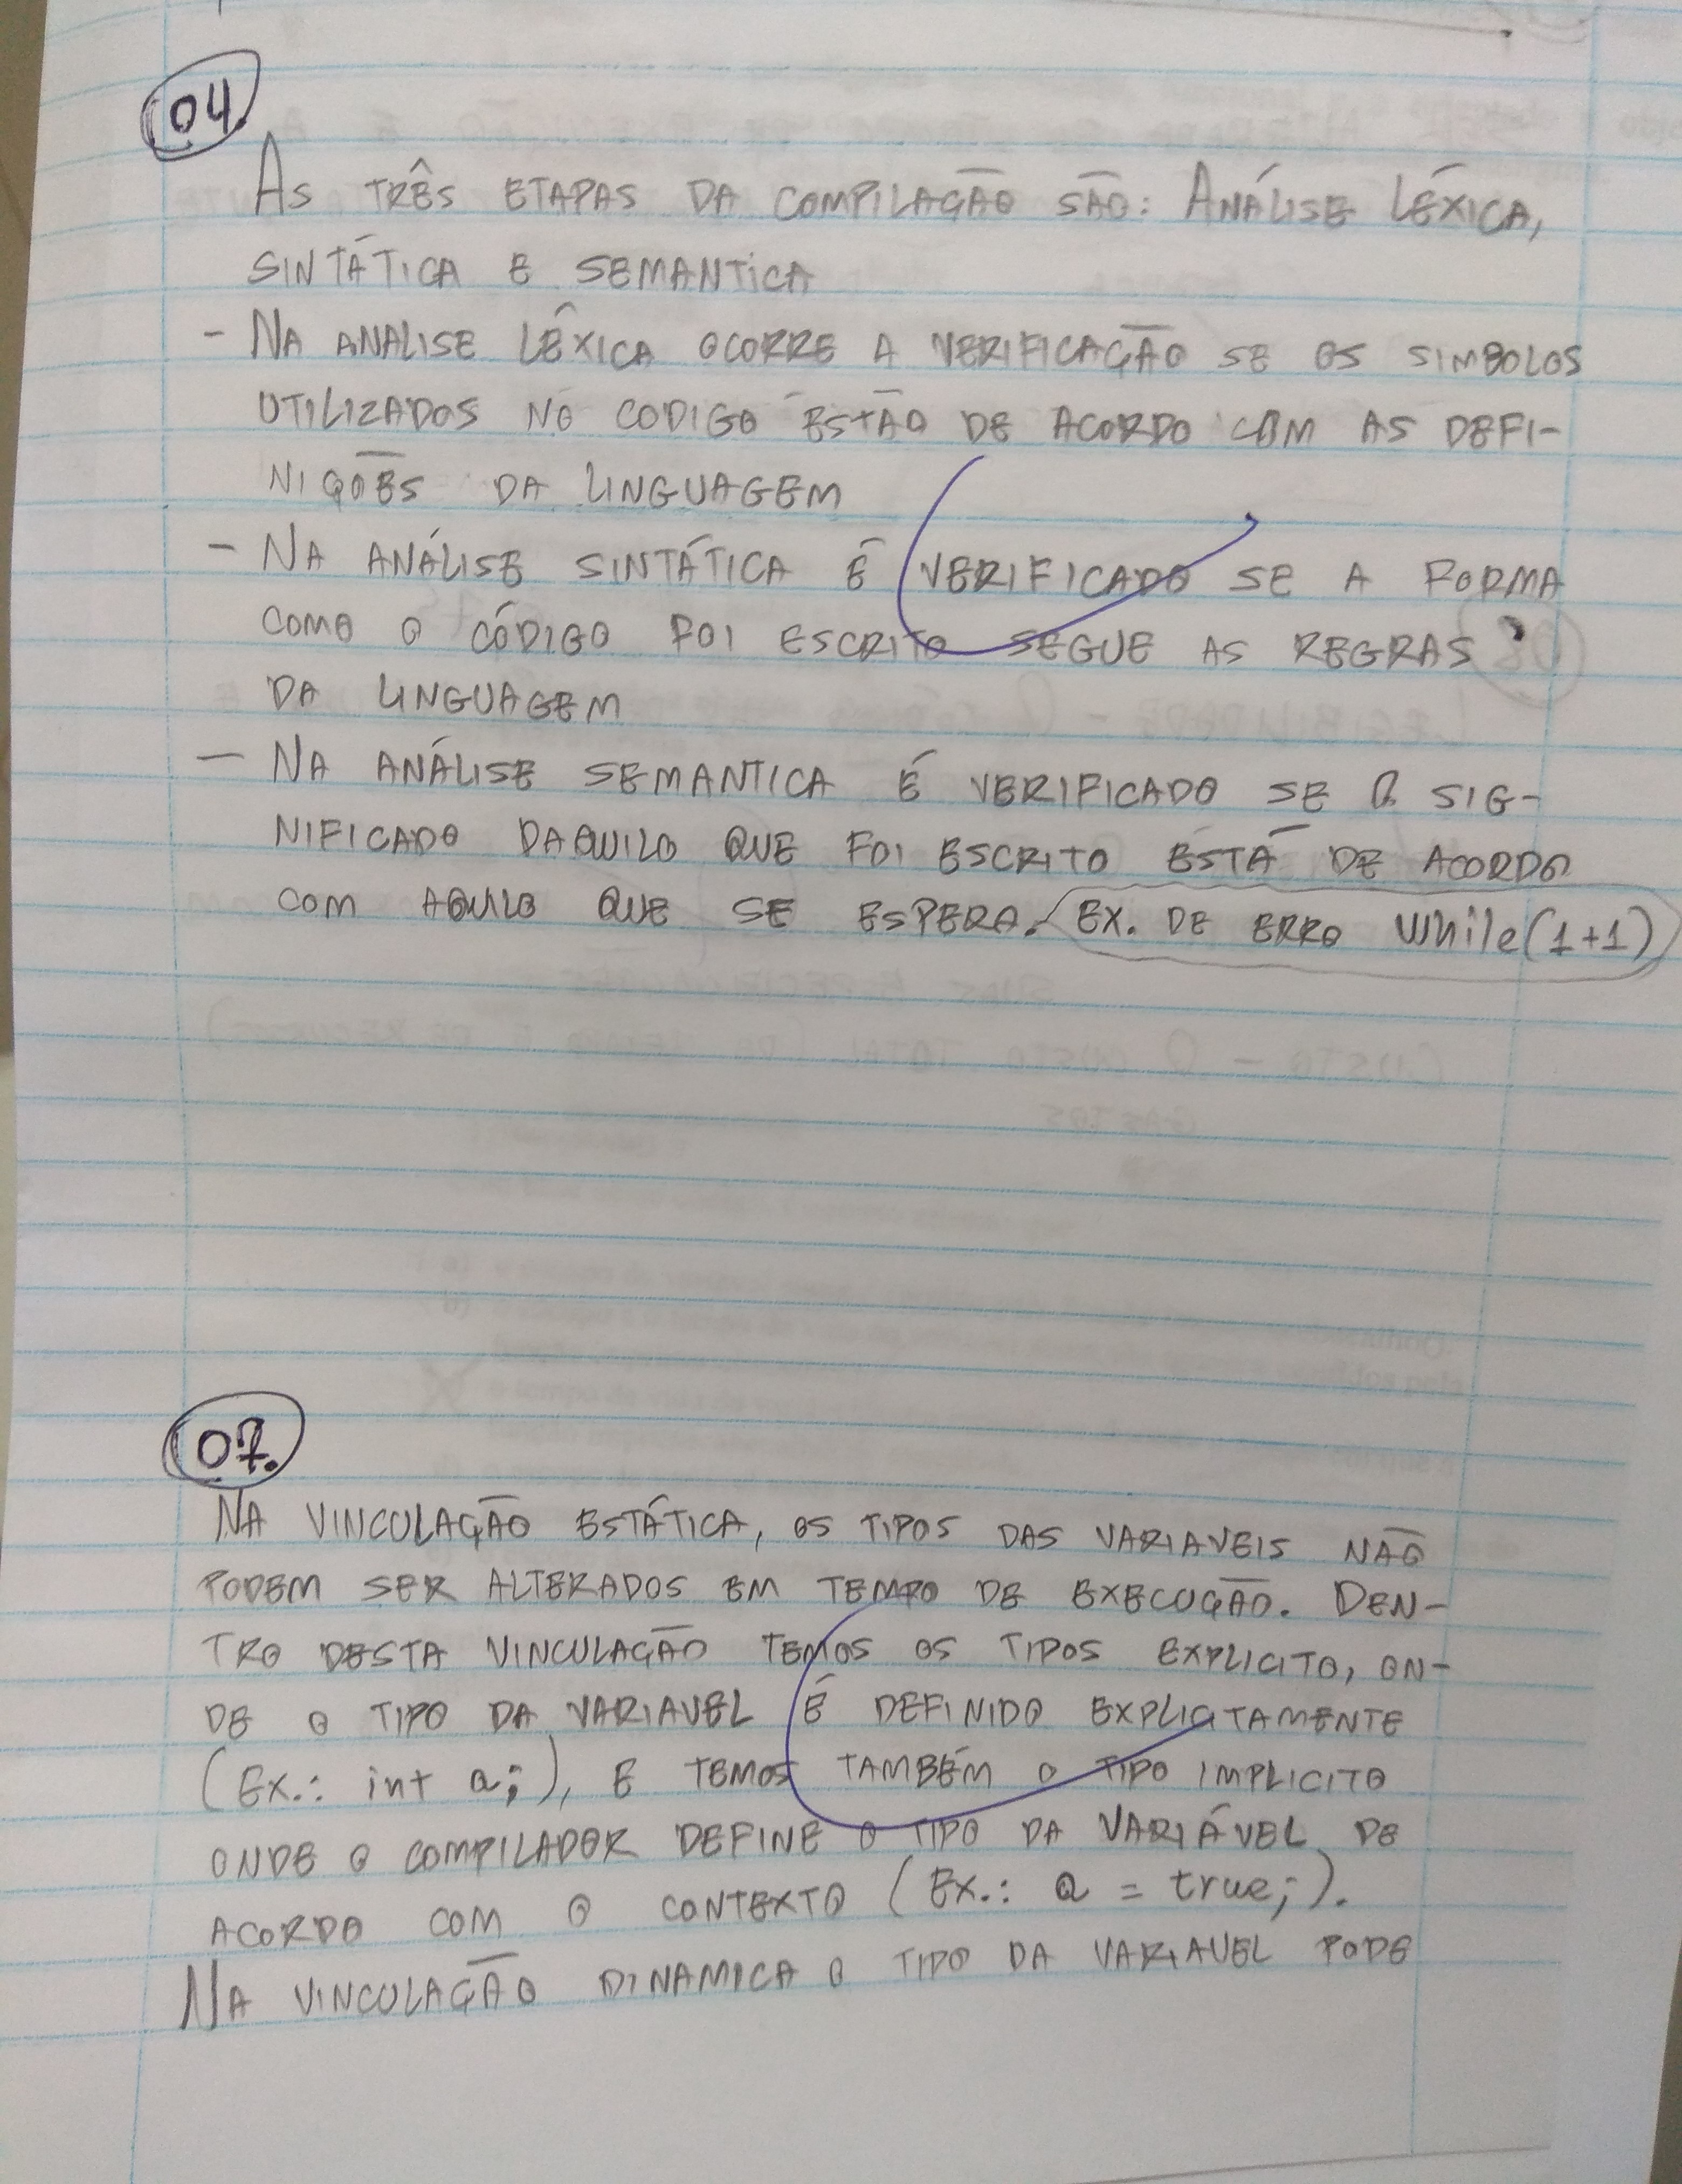 04.
AS TRÊS ETAPAS DA COMPILAÇÃO SÃO: ANÁLISE LÉXICA,
SINTÁTICA E SEMANTICA
- NA ANALISE LÊXICA OCORRE A VERIFICAÇÃO SE OS SIMBOLOS
UTILIZADOS NO CODIGO ESTÃO DE ACORDO COM AS DEFI-
NIÇÕES DA LINGUAGEM
- NA ANÁLISE SINTÁTICA É VERIFICADO SE A FORMA
COMO O CÓDIGO FOI ESCRITO SEGUE AS REGRAS
DA LINGUAGEM
- NA ANÁLISE SEMANTICA É VERIFICADO SE O SIG-
NIFICADO DAQUILO QUE FOI ESCRITO ESTÁ DE ACORDO
COM AQUILO QUE SE ESPERA. EX. DE ERRO While(1+1)
07.
NA VINCULAÇÃO ESTÁTICA, OS TIPOS DAS VARIAVEIS NÃO
PODEM SER ALTERADOS EM TEMPO DE EXECUÇÃO. DEN-
TRO DESTA VINCULAÇÃO TEMOS OS TIPOS EXPLICITO, ON-
DE O TIPO DA VARIAVEL É DEFINIDO EXPLICITAMENTE
(EX.: int a;), E TEMOS TAMBÉM O TIPO IMPLICITO
ONDE O COMPILADOR DEFINE O TIPO DA VARIÁVEL DE
ACORDO COM O CONTEXTO (EX.: a = true;).
NA VINCULAÇÃO DINAMICA O TIPO DA VARIAVEL PODE